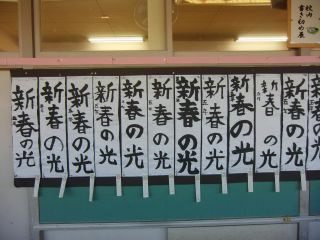 校内
書き初め展
新春の光
新春の光
新春の光
新春の光
新春の光
新春の光
新春の光
新春の光
新春の光
新春の光
新春の光
新春の光